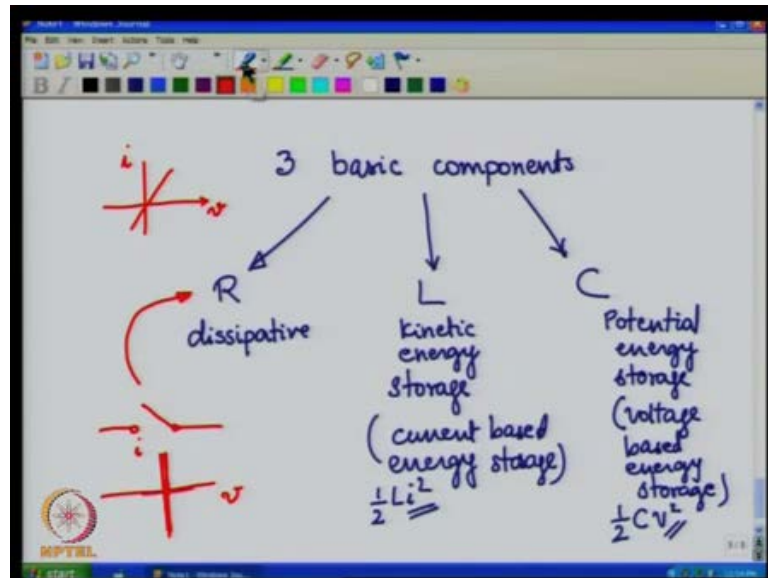 Note1 - Windows Journal
File Edit View Insert Actions Tools Help
B I
3 basic components
i
v
R
dissipative
L
kinetic
energy
storage
(current based
energy storage)
1/2 Li²
C
Potential
energy
storage
(voltage
based
energy
storage)
1/2 CV²
i
v
NPTEL
start